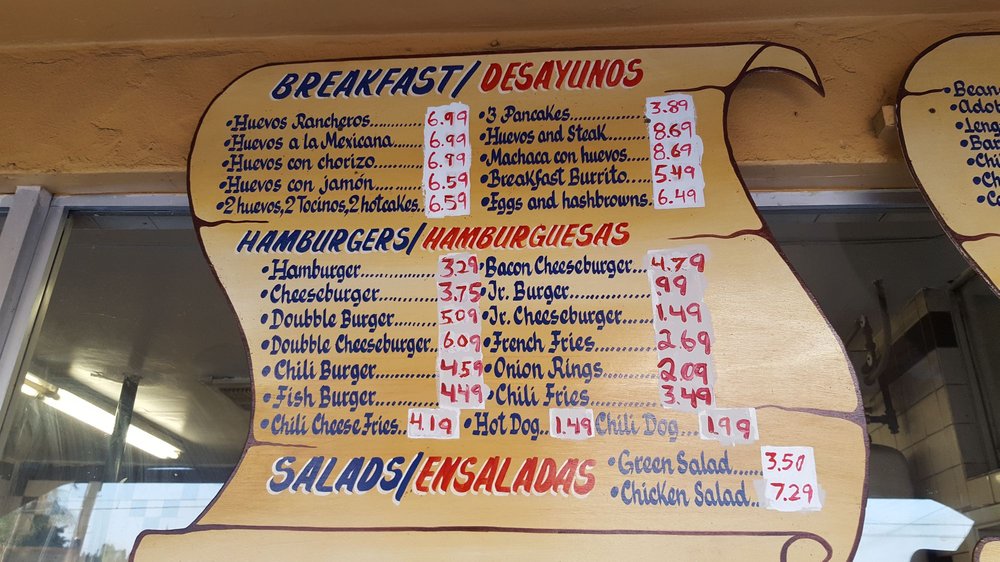 BREAKFAST/DESAYUNOS
•Huevos Rancheros.......... 6.99
•Huevos a la Mexicana...... 6.99
•Huevos con chorizo........ 6.99
•Huevos con jamón.......... 6.59
•2 huevos,2 Tocinos,2 hotcakes.. 6.59
•3 Pancakes................ 3.89
•Huevos and Steak.......... 8.69
•Machaca con huevos........ 8.69
•Breakfast Burrito......... 5.49
•Eggs and hashbrowns....... 6.49
HAMBURGERS/HAMBURGUESAS
•Hamburger................. 3.29
•Cheeseburger.............. 3.75
•Doubble Burger............ 5.09
•Doubble Cheeseburger...... 6.09
•Chili Burger.............. 4.59
•Fish Burger............... 4.49
•Bacon Cheeseburger........ 4.79
•Jr. Burger................ .99
•Jr. Cheeseburger.......... 1.49
•French Fries.............. 2.69
•Onion Rings............... 2.09
•Chili Fries............... 3.49
•Chili Cheese Fries.. 4.19 •Hot Dog.. 1.49 Chili Dog... 1.99
SALADS/ENSALADAS
•Green Salad...... 3.50
•Chicken Salad.. 7.29